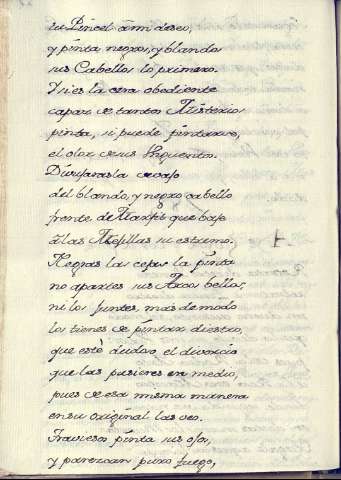 tu Pincel à mi deseo,
y pinta negros, y blandos
sus Cabellos lo primero.
Y si es la cera obediente
capaz de tantos Misterios
pinta, si puede pintarse,
el olor de sus Unguentos.
Dibujarasla debajo
del blando, y negro cabello
frente de Marfil que baje
à las Mejillas su estremo.
Negras las cejas la pinta
no apartes sus Arcos bellos,
ni los juntes, mas de modo
los tienes de pintar diestro,
que estè dudoso el divorcio
que las pusieres en medio,
pues de esa misma manera
en su original las veo.
Traviesos pinta sus ojos,
y parezcan puro fuego,